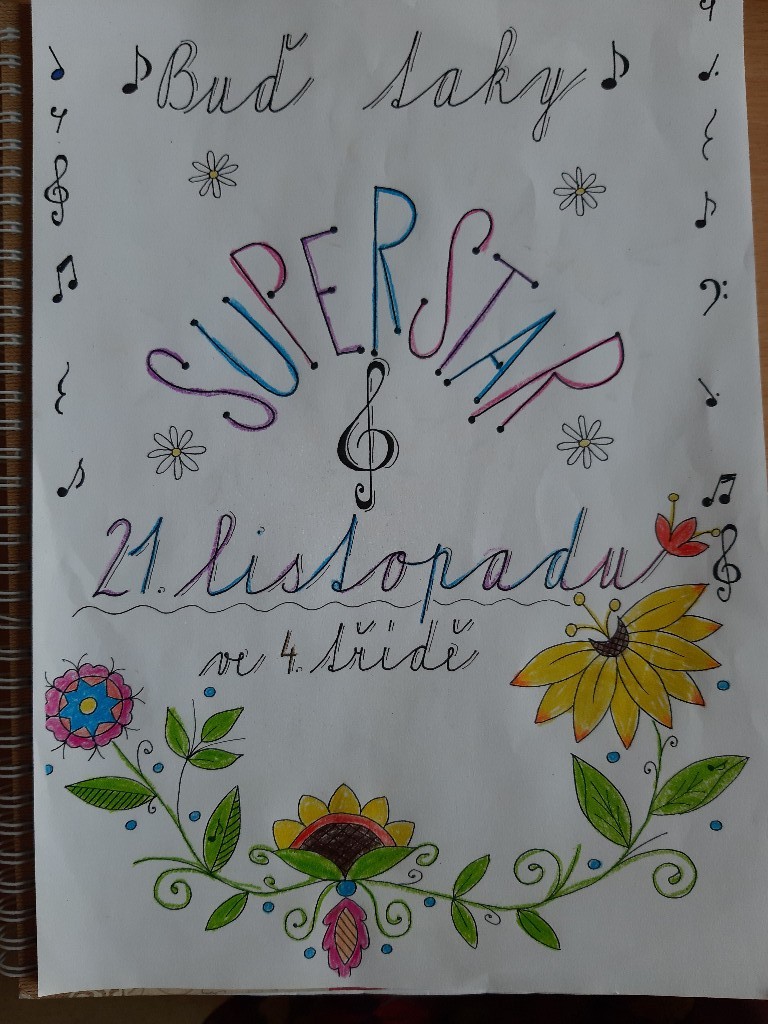 Buď taky
SUPERSTAR
21. listopadu
ve 4. třídě